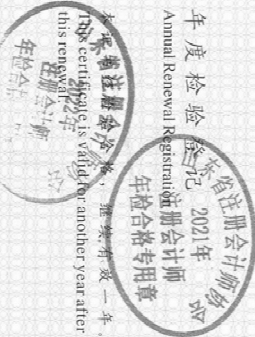 年度检验登记
Annual Renewal Registration
本证书经检验合格，继续有效一年。
This certificate is valid for another year after
this renewal.
省注册会计师协
2022年
注册会计师
年检合格专用章
省注册会
2022年
注册会计师
年检合